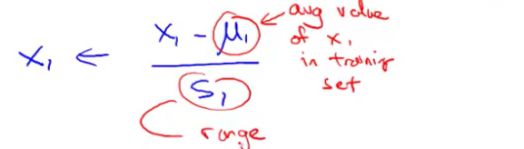 x₁ ← (x₁ - μ₁) / S₁
avg value
of x₁
in training
set
range